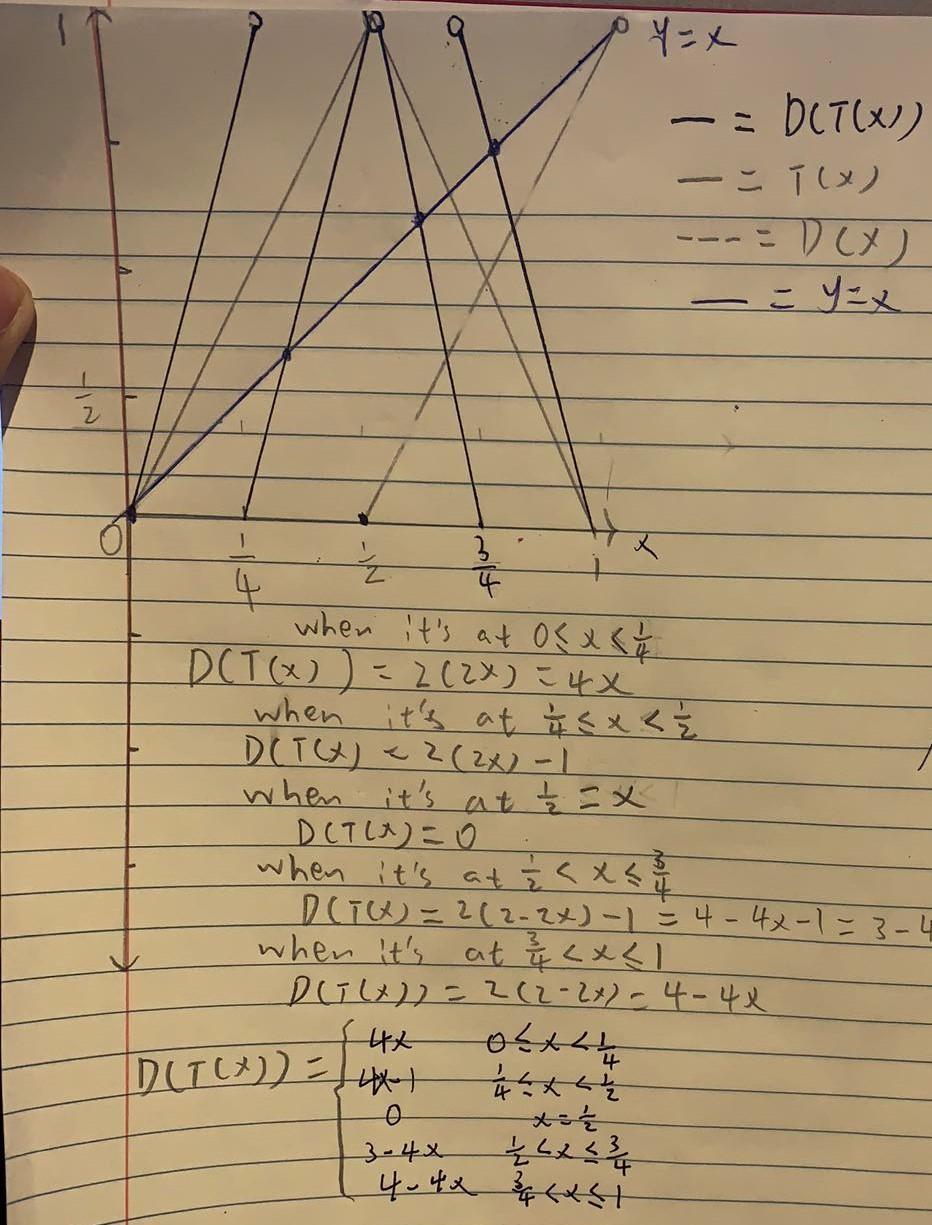 1
y=x
— = D(T(x))
— = T(x)
---- = D(x)
— = y=x
1/2
0 1/4 1/2 3/4 1 x
when it's at 0≤x≤1/4
D(T(x))=2(2x)=4x
when it's at 1/4≤x<1/2
D(T(x)=2(2x)-1
when it's at 1/2=x
D(T(x)=0
when it's at 1/2<x≤3/4
D(T(x)=2(2-2x)-1=4-4x-1=3-4
when it's at 3/4<x≤1
D(T(x))=2(2-2x)=4-4x
D(T(x))= {
4x 0≤x<1/4
4x-1 1/4≤x<1/2
0 x=1/2
3-4x 1/2<x≤3/4
4-4x 3/4<x≤1